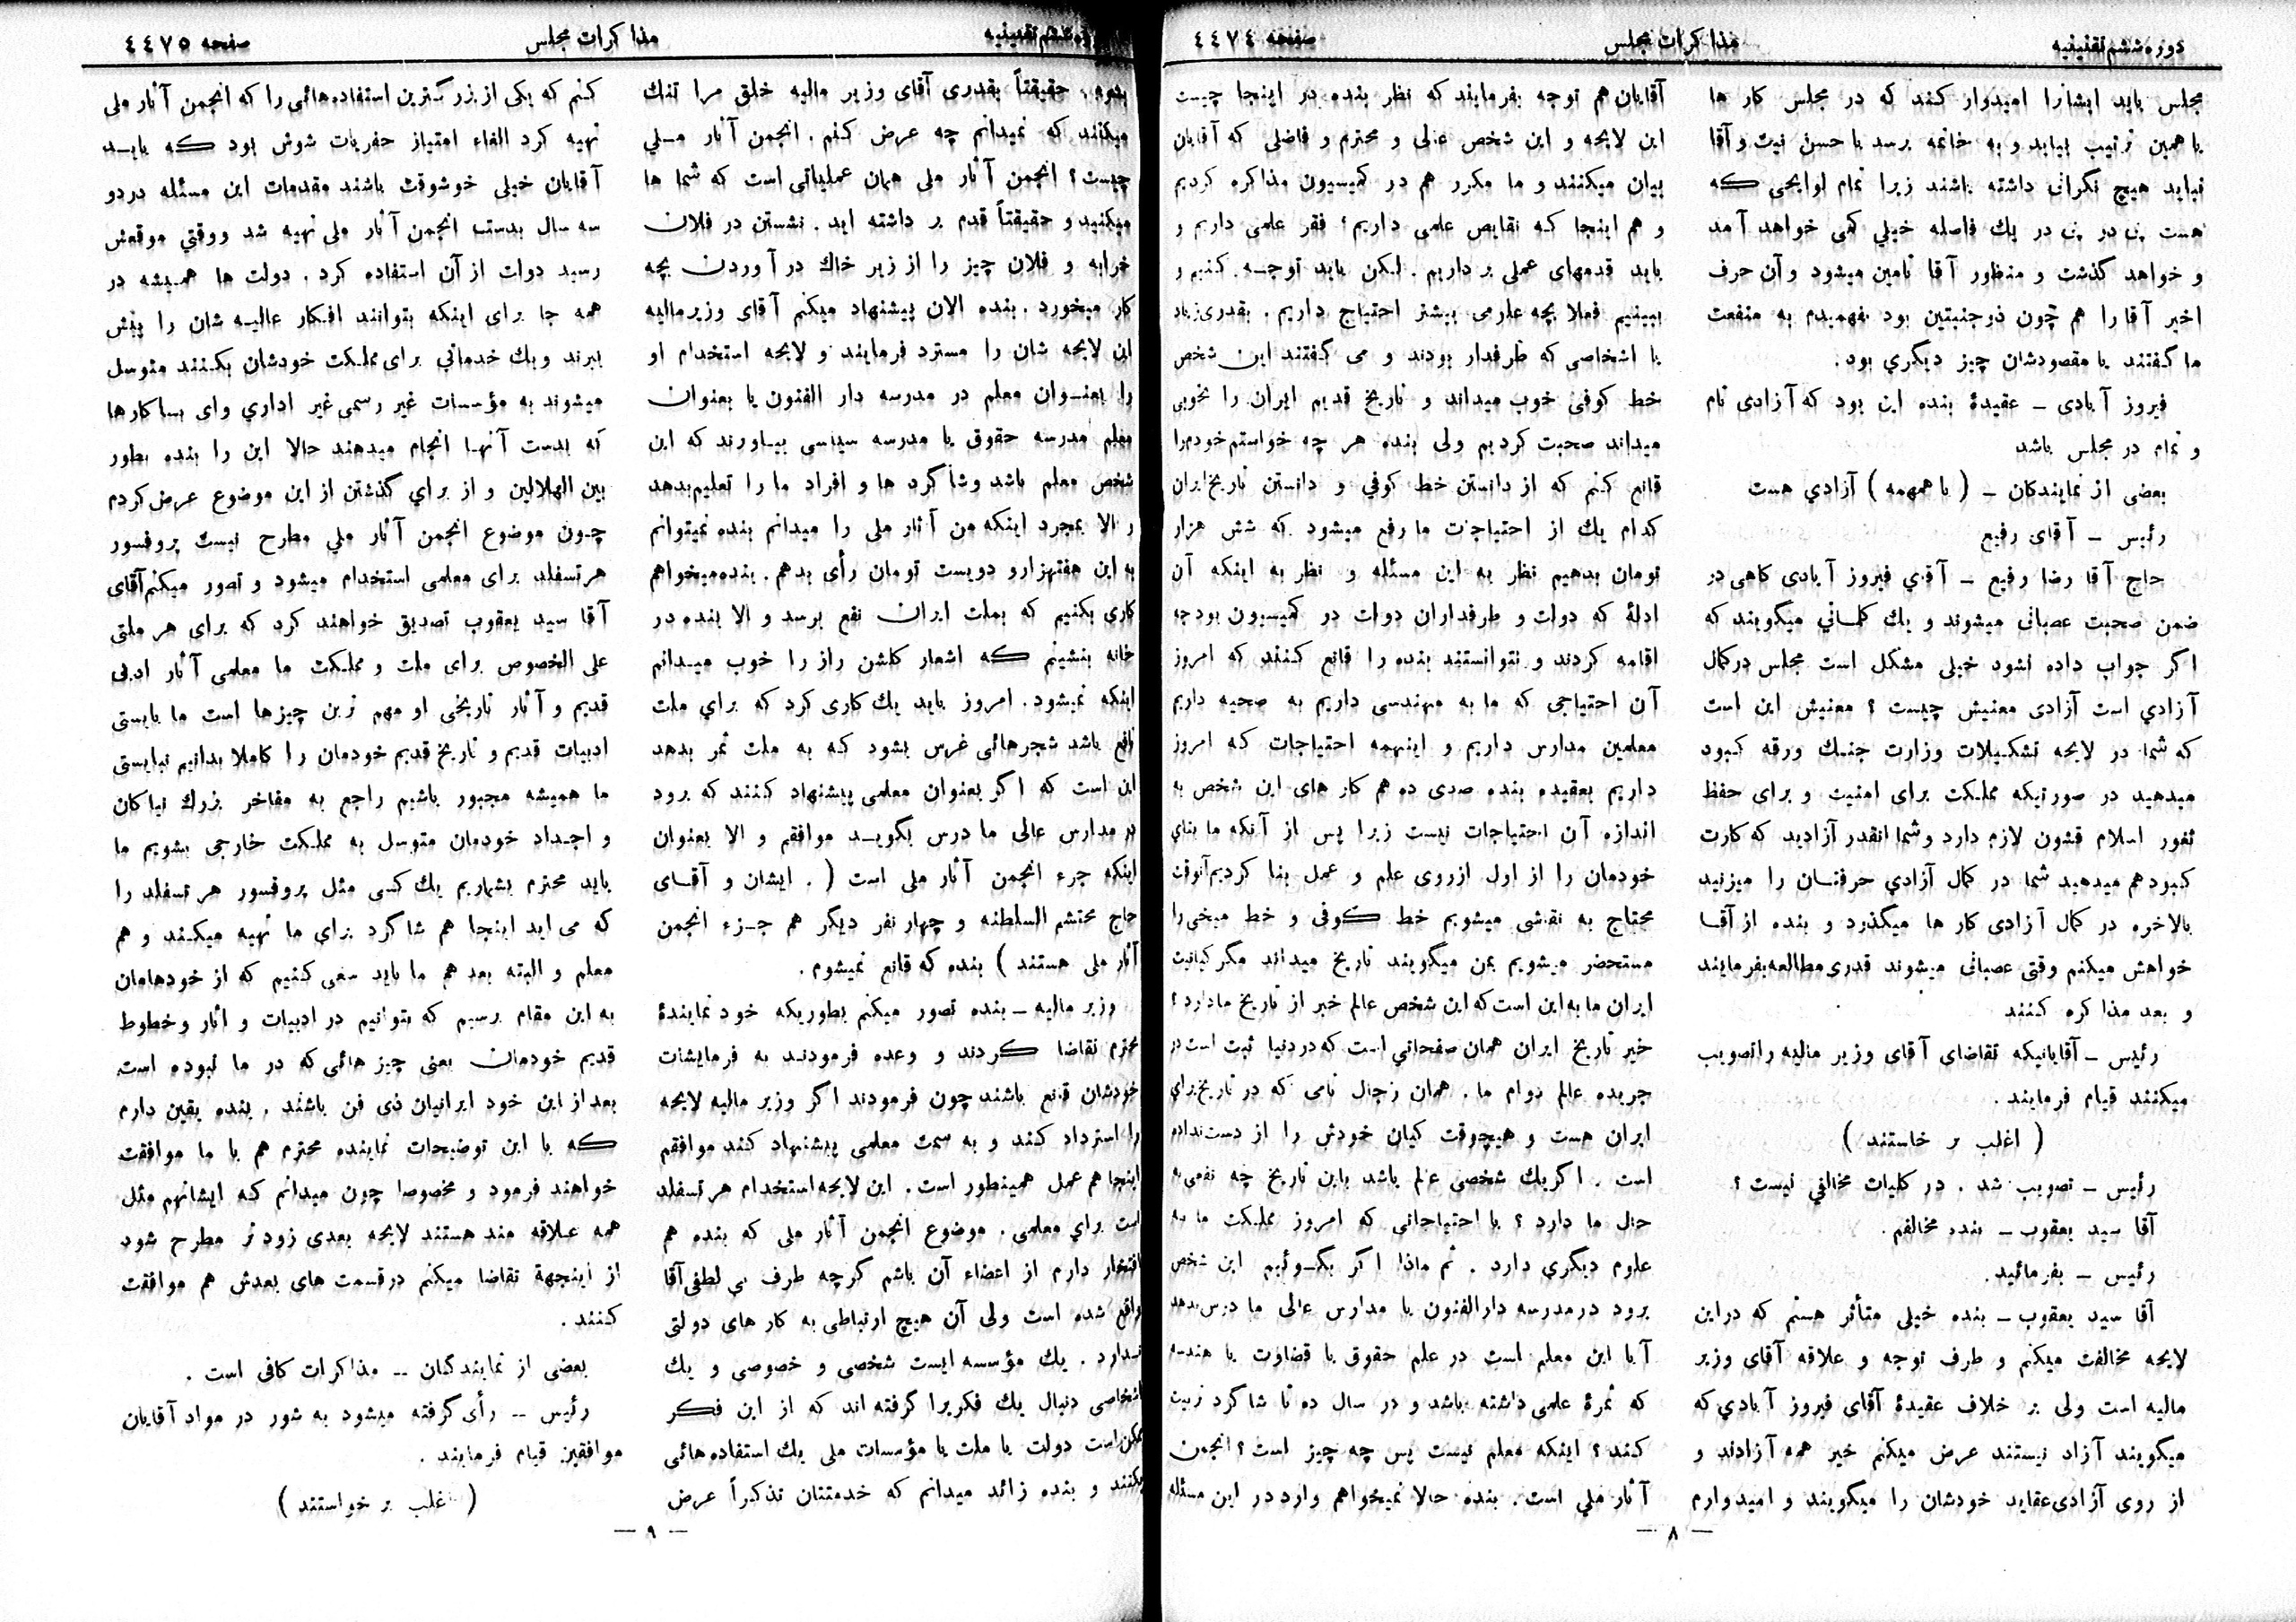 دوره ششم تقنینیه
مذاکرات مجلس
صفحه ٤٤٧٤
مجلس باید ایشانرا امیدوار کند که در مجلس کار ها
با همین ترتیب بیاید و به خاتمه برسد با حسن نیت و آقا
نباید هیچ نگرانی داشته باشند زیرا تمام لوایحی که
هست پی در پی در یك فاصله خیلي کمی خواهد آمد
و خواهد گذشت و منظور آقا تامین میشود و آن حرف
اخیر آقا را هم چون ذوجنبتین بود نفهمیدم به منفعت
ما گفتند یا مقصودشان چیز دیگري بود.
فیروز آبادی ـ عقیدهٔ بنده این بود که آزادی تام
و تمام در مجلس باشد
بعضی از نمایندکان ـ ( با همهمه ) آزادي هست
رئیس ـ آقای رفیع
حاج آقا رضا رفیع ـ آقاي فیروز آبادی کاهی در
ضمن صحبت عصبانی میشوند و یك کلماتي میگویند که
اگر جواب داده نشود خیلی مشکل است مجلس در کمال
آزادي است آزادی معنیش چیست ؟ معنیش این است
که شما در لایحه تشکیلات وزارت جنك ورقه کبود
میدهید در صورتیکه مملکت برای امنیت و برای حفظ
ثغور اسلام قشون لازم دارد و شما انقدر آزادید که کارت
کبود هم میدهید شما در کمال آزادي حرفتان را میزنید
بالاخره در کمال آزادی کار ها میگذرد و بنده از آقا
خواهش میکنم وقتی عصبانی میشوند قدری مطالعه بفرمایند
و بعد مذا کره کنند
رئیس ـ آقایانیکه تقاضای آقای وزیر مالیه را تصویب
میکنند قیام فرمایند .
( اغلب بر خاستند )
رئیس ـ تصویب شد . در کلیات مخالفي نیست ؟
آقا سید یعقوب ـ بنده مخالفم.
رئیس ـ بفرمائید.
آقا سید یعقوب ـ بنده خیلی متأثر هستم که در این
لایحه مخالفت میکنم و طرف توجه و علاقه آقای وزیر
مالیه است ولی بر خلاف عقیدهٔ آقای فیروز آبادي که
میگویند آزاد نیستند عرض میکنم خیر همه آزادند و
از روی آزادی عقاید خودشان را میگویند و امیدوارم
آقایان هم توجه بفرمایند که نظر بنده در اینجا چیست
این لایحه و این شخص عالی و محترم و فاضلی که آقایان
بیان میکنند و ما مکرر هم در کمیسیون مذاکره کردیم
و هم اینجا که نقایص علمی داریم ؛ فقر علمی داریم و
باید قدمهای عملی برداریم . لیکن باید توجه کنیم و
ببینیم فعلا بچه علومی بیشتر احتیاج داریم . بقدری زیاد
با اشخاصی که طرفدار بودند و می گفتند این شخص
خط کوفی خوب میداند و تاریخ قدیم ایران را بخوبی
میداند صحبت کردیم ولی بنده هر چه خواستم خودم را
قانع کنم که از دانستن خط کوفي و دانستن تاریخ ایران
کدام یك از احتیاجات ما رفع میشود که شش هزار
تومان بدهیم نظر به این مسئله و نظر به اینکه آن
ادلهٔ که دولت و طرفداران دولت در کمیسیون بودجه
اقامه کردند و نتوانستند بنده را قانع کنند که امروز
آن احتیاجی که ما به مهندسی داریم به صحیه داریم
معلمین مدارس داریم و اینهمه احتیاجات که امروز
داریم بعقیده بنده صدی ده هم کار های این شخص به
اندازه آن احتیاجات نیست زیرا پس از آنکه ما بنای
خودمان را از اول از روی علم و عمل بنا کردیم آنوقت
محتاج به نقاشی میشویم خط کوفی و خط میخی را
مستحضر میشویم بمن میگویند تاریخ میداند مگر کیانیت
ایران ما به این است که این شخص عالم خبر از تاریخ ما دارد ؟
خیر تاریخ ایران همان صفحاتي است که در دنیا ثبت است در
جریده عالم دوام ما . همان رجال نامی که در تاریخ برای
ایران هست و هیچوقت کیان خودش را از دست نداده
است . اگر یك شخصی عالم باشد باین تاریخ چه نفعی به
حال ما دارد ؟ با احتیاجاتی که امروز مملکت ما به
علوم دیگري دارد . ثم ماذا اگر بگوئیم این شخص
برود در مدرسه دارالفنون یا مدارس عالی ما درس بدهد
آیا این معلم است در علم حقوق یا قضاوت یا هندسه
که ثمرهٔ علمی داشته باشد و در سال ده تا شاگرد تربیت
کند ؟ اینکه معلم نیست پس چه چیز است ؟ انجمن
آثار ملي است . بنده حالا نمیخواهم وارد در این مسئله
— ٨ —
دوره ششم تقنینیه
مذا کرات مجلس
صفحه ٤٤٧٥
بدوم . حقیقتاً بقدری آقای وزیر مالیه خلق مرا تنك
میکنند که نمیدانم چه عرض کنم . انجمن آثار ملي
چیست ؟ انجمن آثار ملی همان عملیاتی است که شما ها
میکنید و حقیقتاً قدم بر داشته اید . نشستن در فلان
خرابه و فلان چیز را از زیر خاك در آوردن بچه
کار میخورد . بنده الان پیشنهاد میکنم آقای وزیر مالیه
این لایحه شان را مسترد فرمایند و لایحه استخدام او
را بعنوان معلم در مدرسه دار الفنون یا بعنوان
معلم مدرسه حقوق یا مدرسه سیاسی بیاورند که این
شخص معلم باشد و شا گرد ها و افراد ما را تعلیم بدهد
و الا بمجرد اینکه من آثار ملی را میدانم بنده نمیتوانم
به این هفتهزار و دویست تومان رأی بدهم . بنده میخواهم
کاری بکنیم که بملت ایران نفع برسد و الا بنده در
خانه بنشینم که اشعار گلشن راز را خوب میدانم
اینکه نمیشود . امروز باید یك کاری کرد که براي ملت
نافع باشد شجرهائی غرس بشود که به ملت ثمر بدهد
این است که اگر بعنوان معلمی پیشنهاد کنند که برود
در مدارس عالی ما درس بگوید موافقم و الا بعنوان
اینکه جزء انجمن آثار ملی است ( . ایشان و آقای
حاج محتشم السلطنه و چهار نفر دیگر هم جزء انجمن
آثار ملی هستند ) بنده که قانع نمیشوم .
وزیر مالیه ـ بنده تصور میکنم بطوریکه خود نمایندهٔ
محترم تقاضا کردند و وعده فرمودند به فرمایشات
خودشان قانع باشند چون فرمودند اگر وزیر مالیه لایحه
را استرداد کند و به سمت معلمی پیشنهاد کند موافقم
اینجا هم عمل همینطور است . این لایحه استخدام هر تسفلد
است براي معلمی . موضوع انجمن آثار ملی که بنده هم
افتخار دارم از اعضاء آن باشم گرچه طرف بی لطفی آقا
واقع شده است ولی آن هیچ ارتباطی به کار های دولتی
ندارد . یك مؤسسه ایست شخصی و خصوصی و یك
اشخاصی دنبال یك فکریرا گرفته اند که از این فکر
ممکن است دولت یا ملت یا مؤسسات ملی یك استفاده هائی
بکنند و بنده زائد میدانم که خدمتتان تذکیراً عرض
کنم که یکی از بزرگترین استفاده هائی را که انجمن آثار ملی
تهیه کرد الغاء امتیاز حفریات شوش بود که باید
آقایان خیلی خوشوقت باشند مقدمات این مسئله در دو
سه سال بدست انجمن آثار ملی تهیه شد و وقتي موقعش
رسید دولت از آن استفاده کرد . دولت ها همیشه در
همه جا برای اینکه بتوانند افکار عالیه شان را پیش
ببرند و یك خدماتي برای مملکت خودشان بکنند متوسل
میشوند به مؤسسات غیر رسمی غیر اداري و ای بسا کارها
که بدست آنها انجام میدهند حالا این را بنده بطور
بین الهلالین و از براي گذشتن از این موضوع عرض کردم
چون موضوع انجمن آثار ملي مطرح نیست پروفسور
هر تسفلد برای معلمی استخدام میشود و تصور میکنم آقای
آقا سید یعقوب تصدیق خواهند کرد که برای هر ملتی
علی الخصوص برای ملت و مملکت ما معلمی آثار ادبی
قدیم و آثار تاریخی او مهم ترین چیزها است ما بایستی
ادبیات قدیم و تاریخ قدیم خودمان را کاملا بدانیم نبایستی
ما همیشه مجبور باشیم راجع به مفاخر بزرك نیاکان
و اجداد خودمان متوسل به مملکت خارجی بشویم ما
باید محترم بشماریم یك کسی مثل پروفسور هر تسفلد را
که می اید اینجا هم شاگرد براي ما تهیه میکند و هم
معلم و البته بعد هم ما باید سعی کنیم که از خودهامان
به این مقام برسیم که بتوانیم در ادبیات و اثار و خطوط
قدیم خودمان یعنی چیز هائی که در ما نبوده است
بعد از این خود ایرانیان ذی فن باشند . بنده یقین دارم
که با این توضیحات نماینده محترم هم با ما موافقت
خواهند فرمود و مخصوصا چون میدانم که ایشانهم مثل
همه علاقه مند هستند لایحه بعدی زودتر مطرح شود
از اینجهة تقاضا میکنم در قسمت های بعدش هم موافقت
کنند .
بعضی از نمایندگان -- مذاکرات کافی است .
رئیس -- رأی گرفته میشود به شور در مواد آقایان
موافقین قیام فرمایند .
( اغلب بر خواستند )
— ٩ —